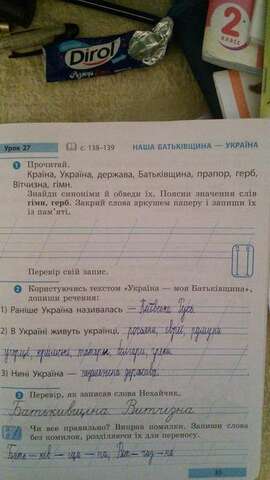 Dirol
2
КЛАСС
Урок 27
с. 138–139
НАША БАТЬКІВЩИНА — УКРАЇНА
1 Прочитай.
Країна, Україна, держава, Батьківщина, прапор, герб,
Вітчизна, гімн.
Знайди синоніми й обведи їх. Поясни значення слів
гімн, герб. Закрий слова аркушем паперу і запиши їх
із пам'яті.
Перевір свій запис.
2 Користуючись текстом «Україна — моя Батьківщина»,
допиши речення:
1) Раніше Україна називалась — Київська Русь
2) В Україні живуть українці, росіяни, євреї, румуни
угорці, кримські, татари, болгари, греки
3) Нині Україна — незалежна держава.
3 Перевір, як записав слова Нехайчик.
Батькивщина Витчизна
Чи все правильно? Виправ помилки. Запиши слова
без помилок, розділяючи їх для переносу.